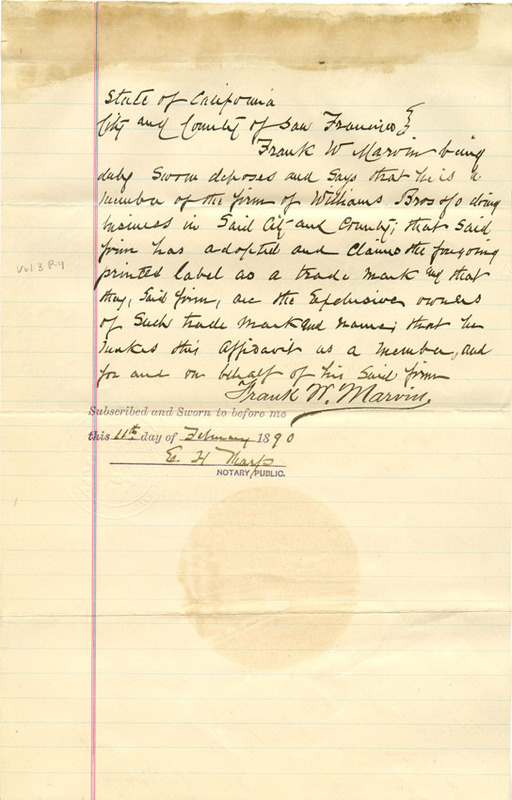 State of California
City and County of San Francisco }
Frank W Marvin being
duly Sworn deposes and Says that he is a
member of the firm of Williams Bros &Co doing
business in Said City and County; that Said
firm has adopted and Claims the foregoing
printed label as a trade mark and that
they, Said firm, are the Exclusive owners
of Such trade mark and name; that he
makes this Affidavit as a member, and
for and on behalf of his Said firm
Frank W. Marvin
Vol. 3 P-4
Subscribed and Sworn to before me
this 11th day of February 1890
E. H Tharp
NOTARY PUBLIC.